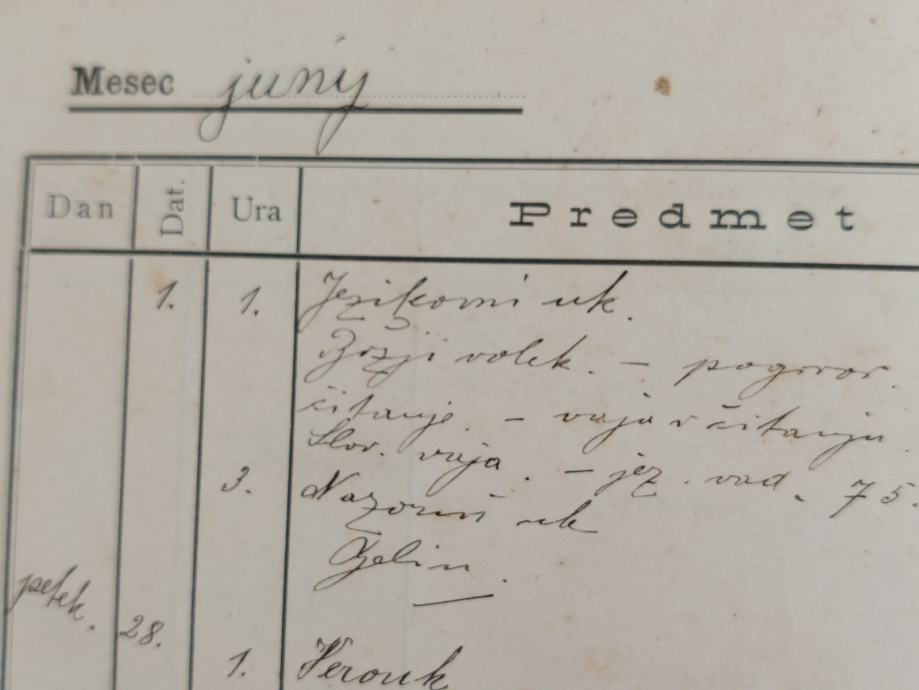 Mesec junij
Dan Dat. Ura Predmet
1. 1. Jezikovni uk.
Božji volek. – pogovor.
čitanje. – vaja v čitanju
slov. vaja. – jez. vad. 75.
3. Nazorni uk
petek. 28.
1. Verouk